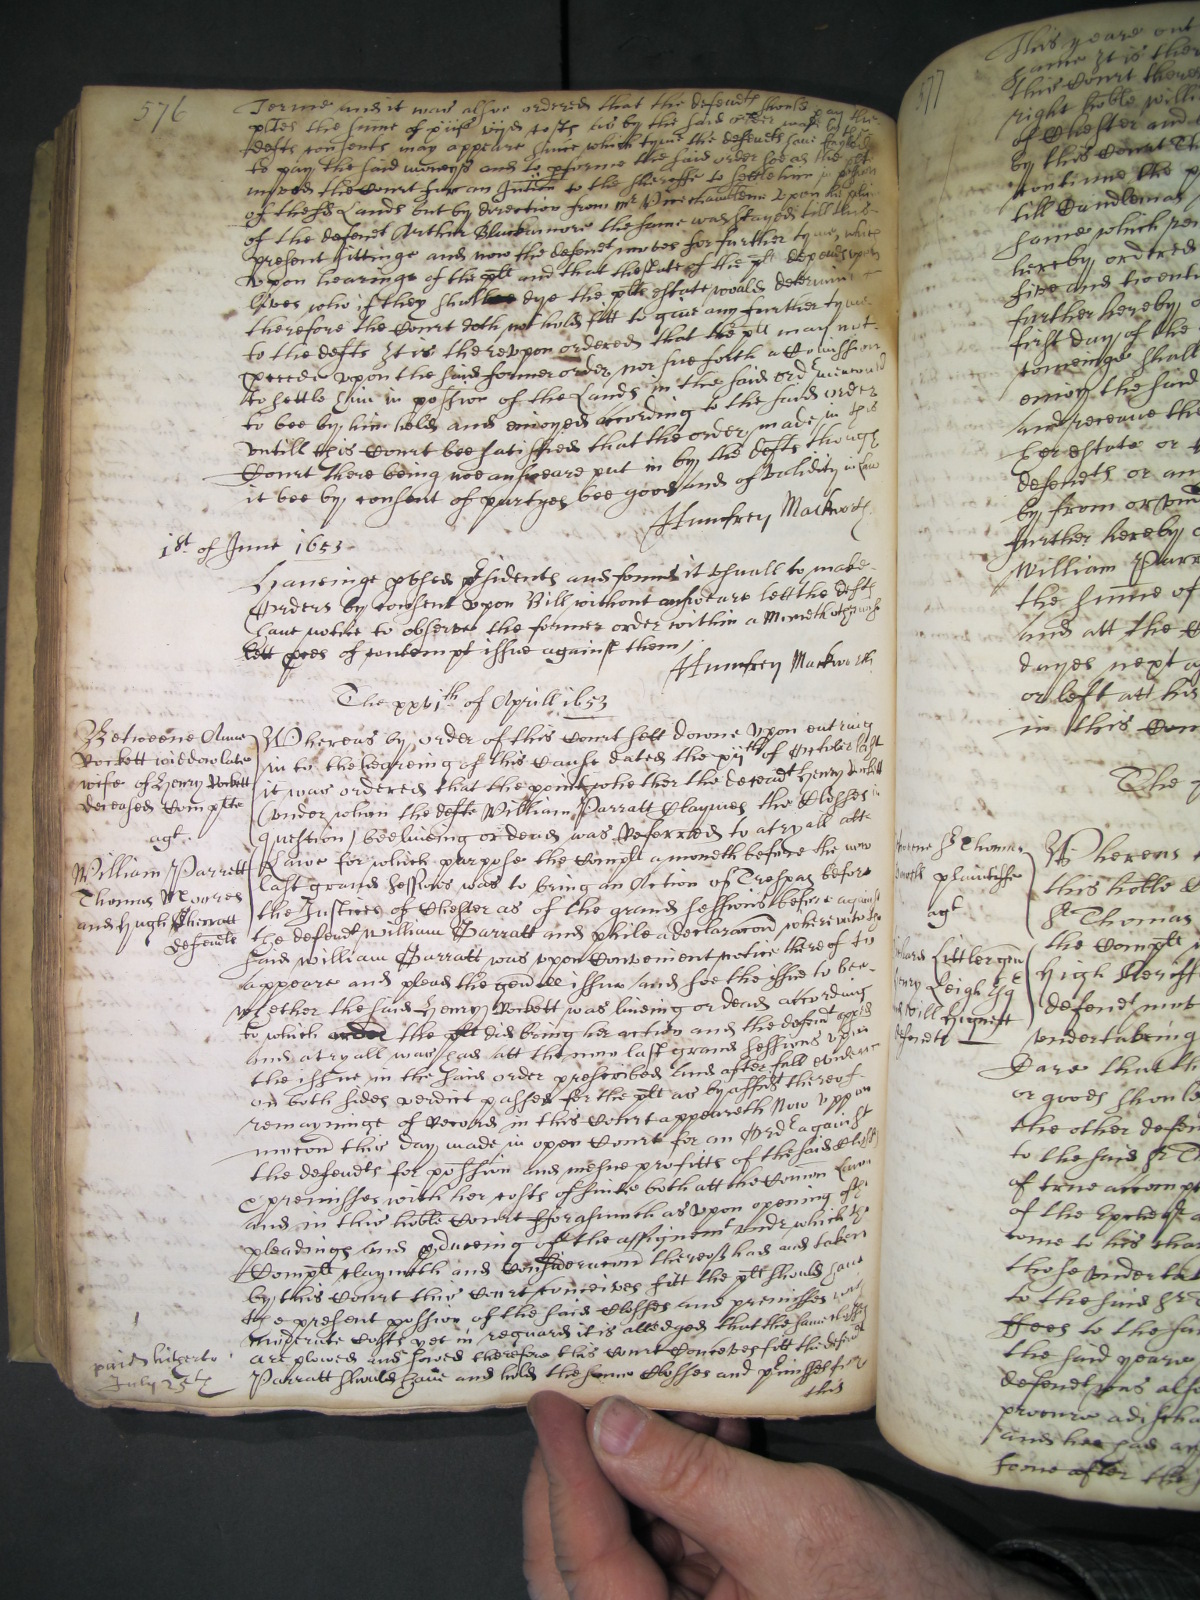 576
Terme and it was alsoe ordered that the defendts should pay the
plts the sume of xiijs viijd costs as by the said order made by the
defts consents may appeare since which tyme the defendts have fayled
to pay the said moneys and to pforme the said order soe as the plt
moved the Court for an Iniuncon to the Shereffe to settle him in possion
of these Lands but by direction from Mr Vice chamblene upon the peticon
of the defendt Arthur Blackamore the same was stayed till this
present sittinge and now the defendt moves for further tyme which
upon hearinge of the plt and that the state of the plt depends upon
lives who if they shall dye the plts estate would determine
therefore the Court doth not hold fitt to give any further tyme
to the defts It is thereupon ordered that the plt may not
proceede upon the said former order nor sue forth a Comission
to settle him in possion of the Lands in the said order menconed
to bee by him held and enioyed according to the said order
untill this Court bee satisfied that the order made in this
Court there being noe answeare put in by the defts though
it bee by consent of partyes bee good and of validity in Law
Humfrey Mackworth
1st of June 1653
Haveinge pused psidents and found it usuall to make
Orders by consent upon Bill without answeare lett the defts
have notice to observe the former order within a Moneth otherwise
lett pces of contempt issue against them
Humfrey Mackworth
The xxvith of Aprill 1653
Betweene Anne
Rockett widdow late
wife of Henry Rockett
deceased Complte
agt
William Parratt
Thomas Moores
and Hugh Sherratt
defendts
Whereas by order of this Court sett downe upon entring
in to the hearing of this Cause dated the xijth of October last
it was ordered that the point whether the defendt Henry Rockett
(under whom the defte William Parratt claymes the Closses in
question) bee liveing or dead was referred to a tryall att
Lawe for which purpose the Complt a moneth before the now
last grand Sessions was to bring an Action of Trespas before
the Justices of Chester as of the grand Sessions before against
the defendt William Parratt and phile a declaracon whereunto the
said William Parratt was upon Convenient notice thereof to
appeare and plead the genall issue and soe the issue to bee
whether the said Henry Rockett was liveing or dead according
to which the plt did bring her action and the defendt appd
and a tryall was had att the now last grand Sessions upon
the issue in the said order prescribed and after full evidence
on both sides verdict passed for the plt as by affidt thereof
remayninge of Record in this Court appeareth Now uppon
mocon this day made in open Court for an Order against
the defendts for possion and mesne profitts of the said Closses
& premisses with her costs of suite both att the Comon Lawe
and in this hoble Court Fforasmuch as upon opening of the
pleadings and pduceing of the assignemt under which the
Complt claymeth and Consideracon thereof had and taken
by this Court this Court conceives fitt the plt should have
the present possion of the said Closses and premisses with
moderate Costs yet in reguard it is alledged that the same Closses
are plowed and sowed therefore this Court conceives fitt the defendt
Parratt should have and hold the same Closses and pmisses for
this
paid hitherto
July 25th
577
This yeare out
same It is ther
this Court thou
right hoble willi
of Chester and
by this Court Th
continue the p
till Candlemas
same which
hereby ordered
five and twenti
further hereby
first day of the
comeinge shall
enioy the said
and receave the
her estate or
defendts or an
by from or und
further hereby
William Parr
the sume of
and att the
dayes next a
or left att his
in this Cou
The
Sr Thomas
plaintiffe
agt
Littler gen
Henry Leigh Esq
defendts
Whereas
this hoble
Sr Thomas
the Complt
high Sheriff
defendt
undertaking
Dare that th
or goods shoul
the other defen
to the said Sr
of true accompt
of the Excheqr
come to his
those undertak
to the said Sr
ffees to the sa
the said yeare
defendt
procure a discha
and hee had
some after the